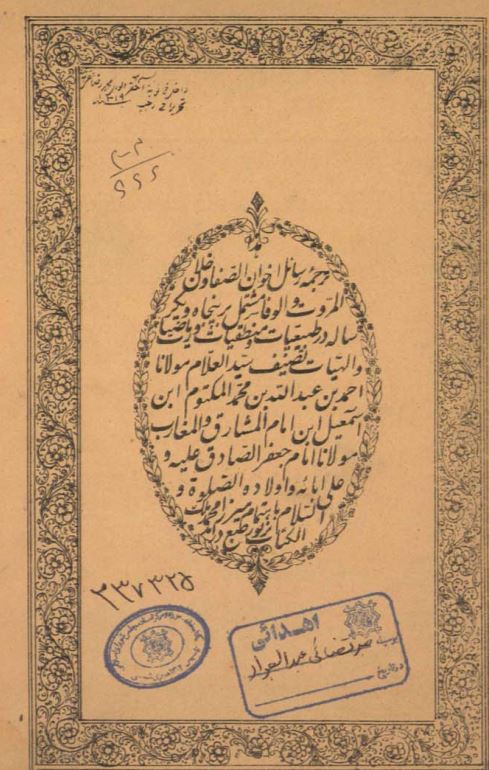 ترجمه رسائل اخوان الصفا و خلان
المروت و الوفا مشتمل بر پنجاه و یکر
ساله در طبیعیات و منطقیات و ریاضیات
و الهیات تصنیف سید العلام مولانا
احمد بن عبد الله بن محمد المکتوم ابن
اسمعیل ابن امام المشارق و المغارب
مولانا امام جعفر الصادق علیه و
علی ابائه و اولاده الصلوة و
السلام باهتمام میرزا محمد ملک
الکتاب بزیور طبع در آمد
۲۳۷۳۲۵
اهدائی
مرتضائی عبد الجواد
در تاریخ